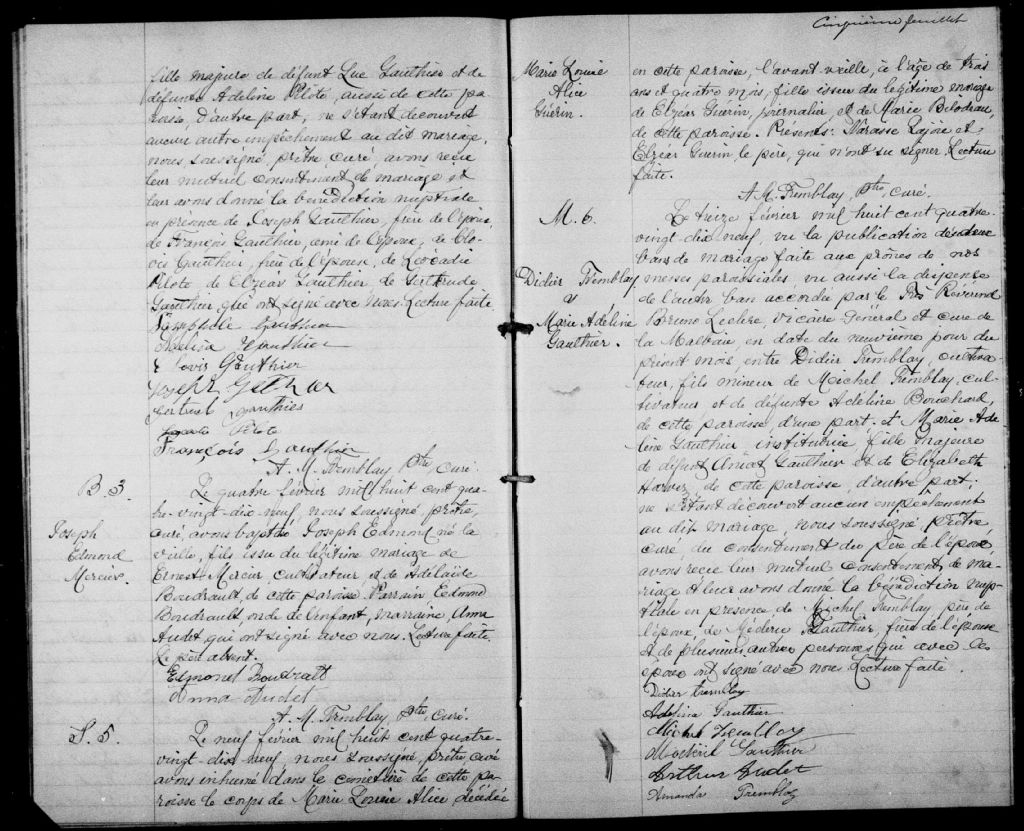 fille majeure de défunt Luc Gauthier et de
défunte Adeline Pilote, aussi de cette pa-
roisse, d'autre part; ne s'étant découvert
aucun autre empêchement au dit mariage,
nous soussigné, prêtre curé, avons reçu
leur mutuel consentement de mariage et
leur avons donné la bénédiction nuptiale
en présence de Joseph Gauthier, frère de l'épouse,
de François Gauthier, ami de l'époux, de Clo-
vis Gauthier, frère de l'épouse, de Léocadie
Pilote, de Elzéar Gauthier, de Gertrude
Gauthier qui ont signé avec nous. Lecture faite.
Gauthier
Gauthier
Clovis Gauthier
Joseph
Gauthier
Pilote
François Gauthier
A. M. Tremblay Ptre, curé.
B 3.
Joseph
Edmond
Mercier.
Le quatre février mil huit cent qua-
tre-vingt-dix-neuf, nous soussigné, prêtre,
curé, avons baptisé Joseph Edmond, né la
veille, fils issu du légitime mariage de
Ernest Mercier, cultivateur et de Adélaïde
Boudrault, de cette paroisse. Parrain Edmond
Boudrault, oncle de l'enfant, marraine Anna
Audet, qui ont signé avec nous. Lecture faite.
Le père absent.
Edmond Boudralt
Anna Audet
A. M. Tremblay Ptre, curé.
S. 5.
Le neuf février mil huit cent quatre-
vingt-dix neuf, nous soussigné, prêtre curé
avons inhumé dans le cimetière de cette pa-
roisse le corps de Marie Louise Alice, décédée
Cinquième feuillet
Marie Louise
Alice
Guérin.
en cette paroisse, l'avant-veille, à l'âge de trois
ans et quatre mois, fille issue du légitime mariage
de Elzéar Guérin, journalier, et de Marie Bilodeau,
de cette paroisse. Présents: Narcisse Lajoie et
Elzéar Guérin le père, qui n'ont su signer. Lecture
faite.
A. M. Tremblay, Ptre, curé.
M. 6.
Didier Tremblay
&
Marie Adeline
Gauthier.
Le treize février mil huit cent quatre-
vingt-dix neuf, vu la publication de deux
bans de mariage faite aux prônes de nos
messes paroissiales, vu aussi la dispense
de l'autre ban accordée par le Très Révérend
Bruno Leclerc, Vicaire Général et curé de
la Malbaie, en date du neuvième jour du
présent mois, entre Didier Tremblay, cultiva-
teur, fils mineur de Michel Tremblay, cul-
tivateur et de défunte Adeline Bouchard,
de cette paroisse, d'une part; et Marie Ade-
line Gauthier institutrice fille majeure
de défunt Gauthier et de Elizabeth
Harvey, de cette paroisse, d'autre part;
ne s'étant découvert aucun empêchement
au dit mariage, nous soussigné, prêtre
curé, du consentement du père de l'époux
avons reçu leur mutuel consentement de ma-
riage et leur avons donné la bénédiction nup-
tiale en présence de Michel Tremblay père de
l'époux, de Médéric Gauthier, frère de l'épouse
et de plusieurs autres personnes qui avec les
époux ont signé avec nous. Lecture faite.
Didier Tremblay
Adelina Gauthier
Michel Tremblay
Gauthier
Arthur Audet
Amanda Tremblay